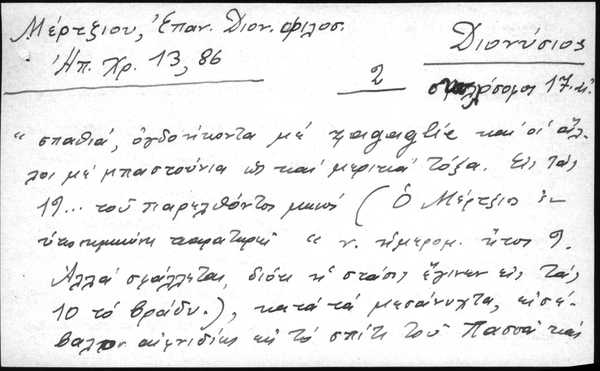 Μέρτζιου, Ἐπαν. Διον. φιλοσ.
Ἠπ. Χρ. 13, 86
Διονύσιος
2
σκυλόσοφος 17. αἰ.
"σπαθιά, ὀγδοήκοντα μέ καί οἱ ἄλ-
λοι μέ μπαστούνια ὡς καί μερικά τόξα. Εἰς τάς
19... τοῦ παρελθόντος μηνός (Ὁ Μέρτζιος ἐν
παρατηρεῖ "ν. ἡμερομ. ἤτοι 9.
Ἀλλά σφάλλεται, διότι ἡ στάσις ἔγινεν εἰς τάς
10 τό βράδυ.), κατά τά μεσάνυχτα, εἰσέ-
βαλον αἰφνιδίως εἰς τό σπίτι τοῦ Πασσᾶ καί